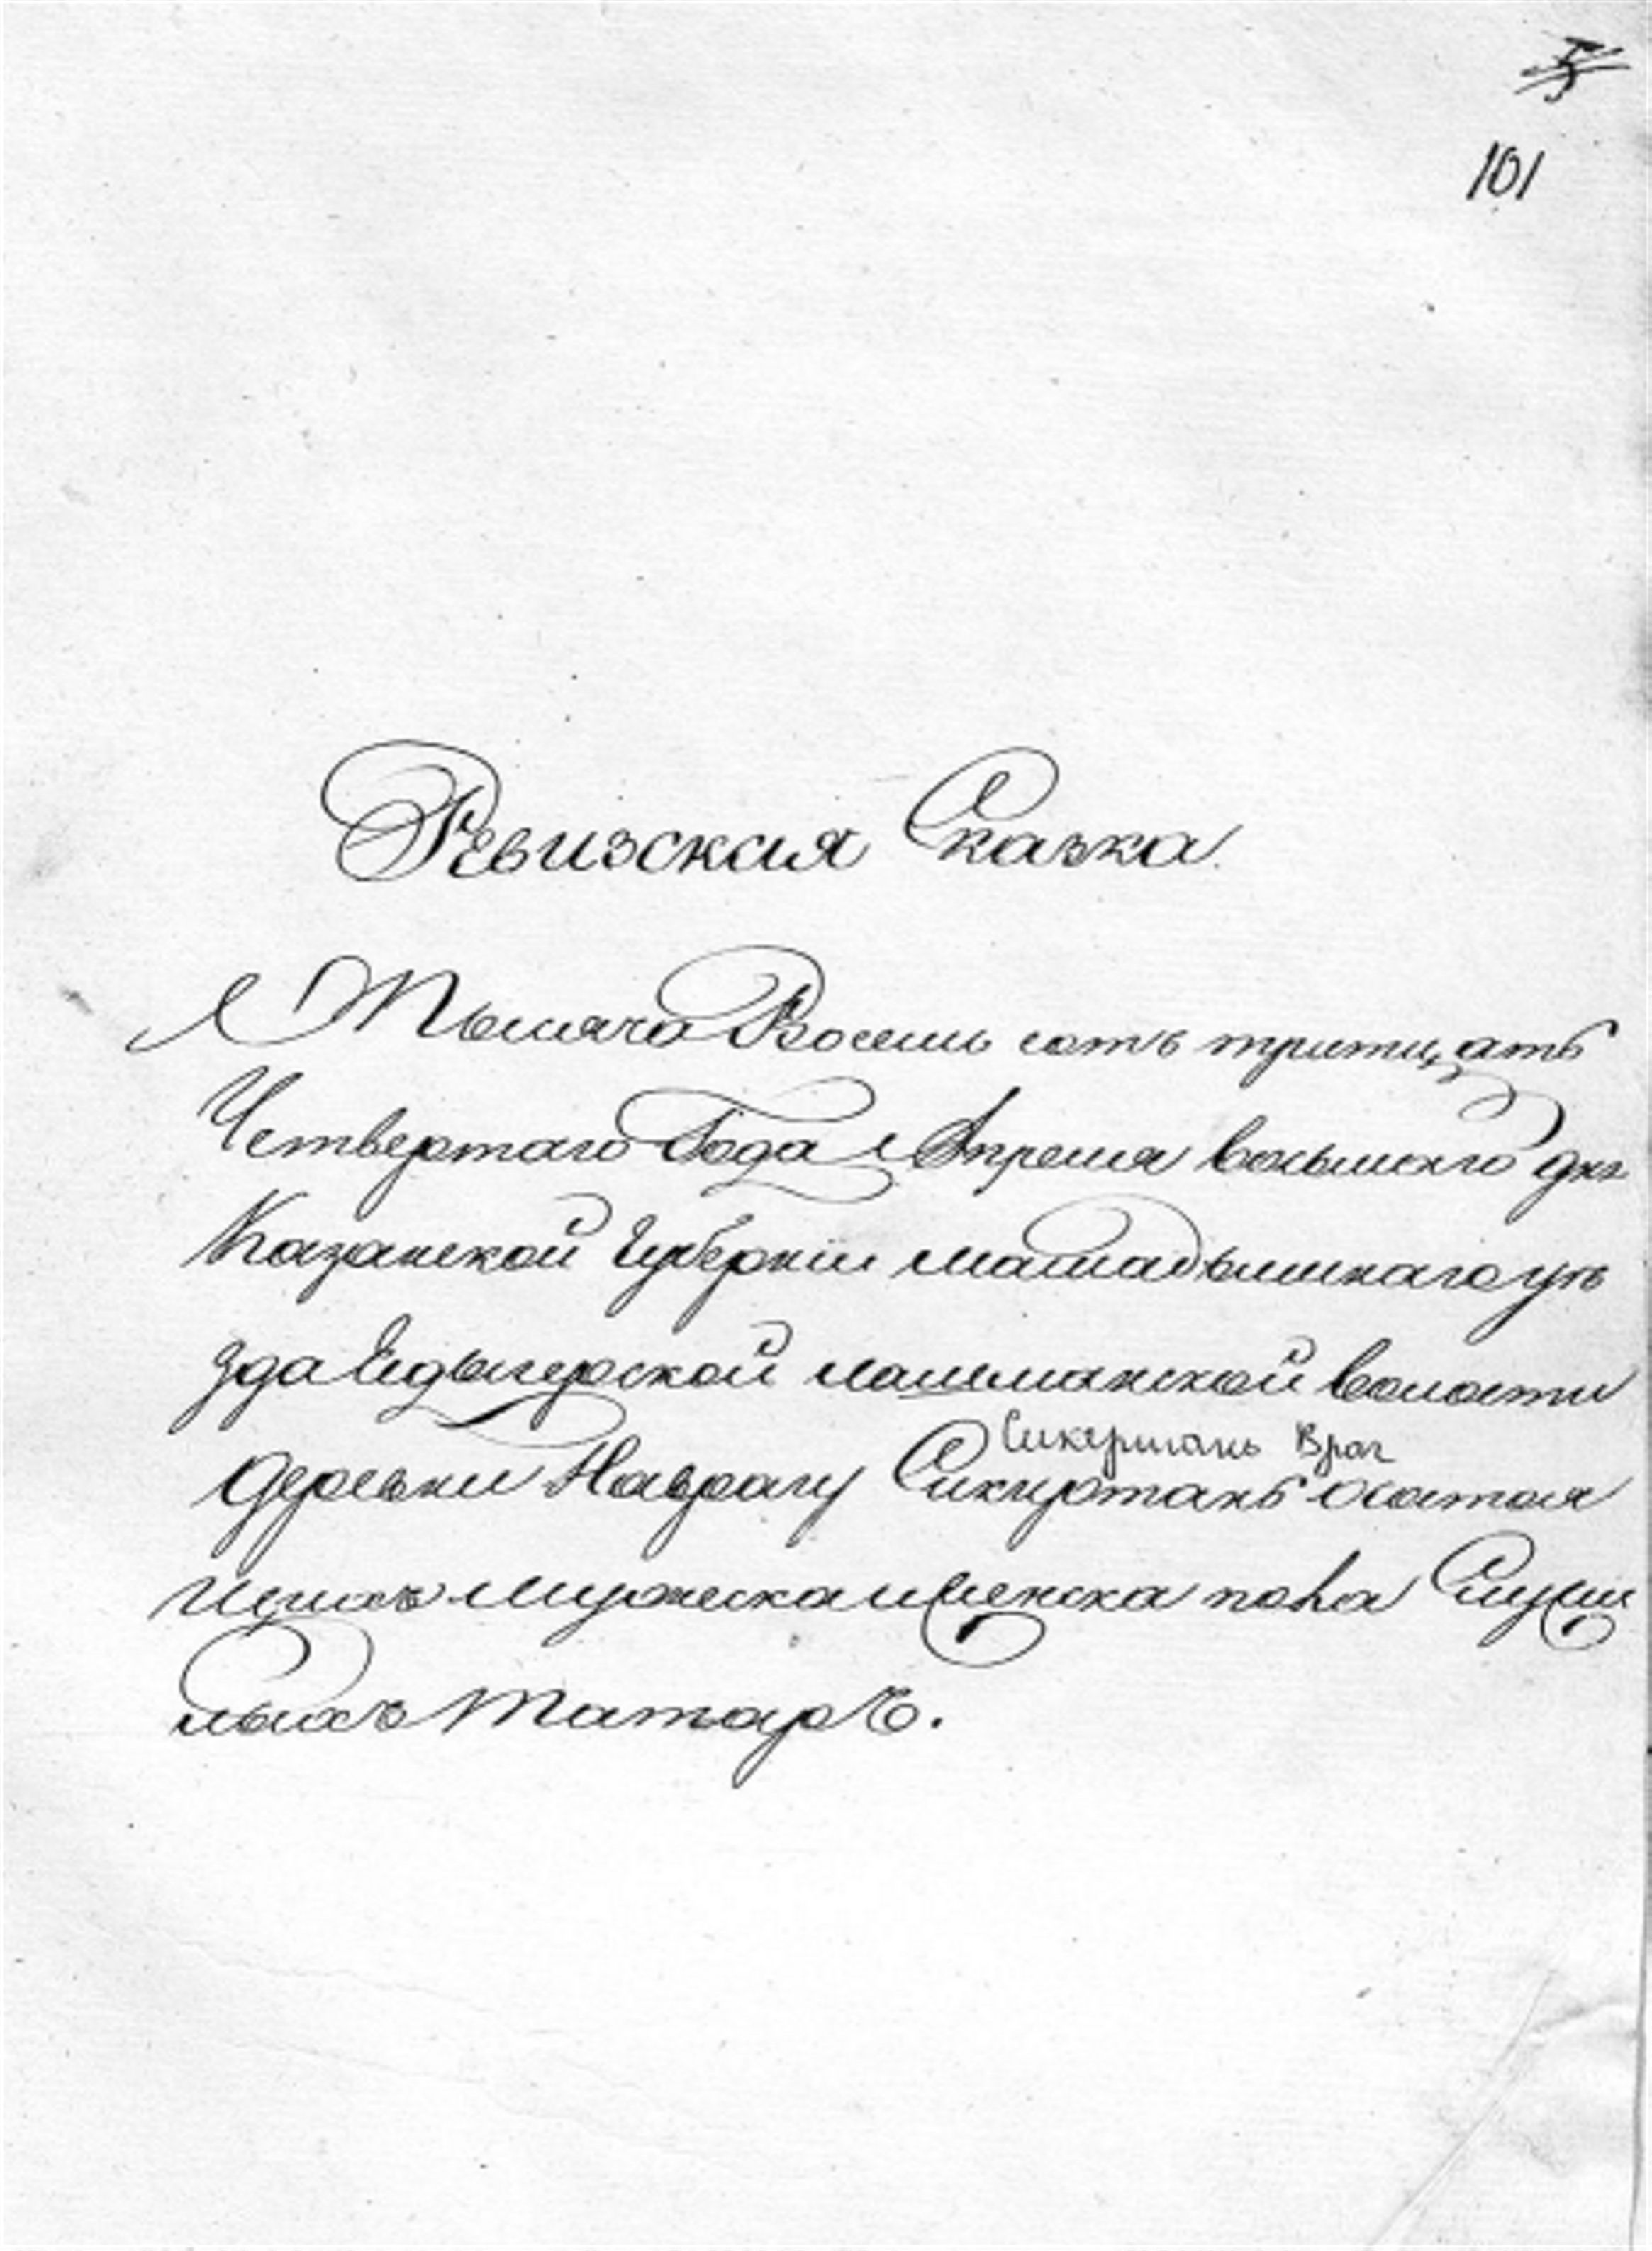 101
Ревизская Сказка.
Тысяча Восемь сотъ тритцать
Четвертаго Года Апреля восьмаго дня
Казанской Губернiи мамадышскаго уѣ
зда Едыгерской лашманской волости
Сикертань Враг
деревни Наврагу Сикиртань осостоя
щихъ мужеска иженска пола Служи
лыхъ татаръ.